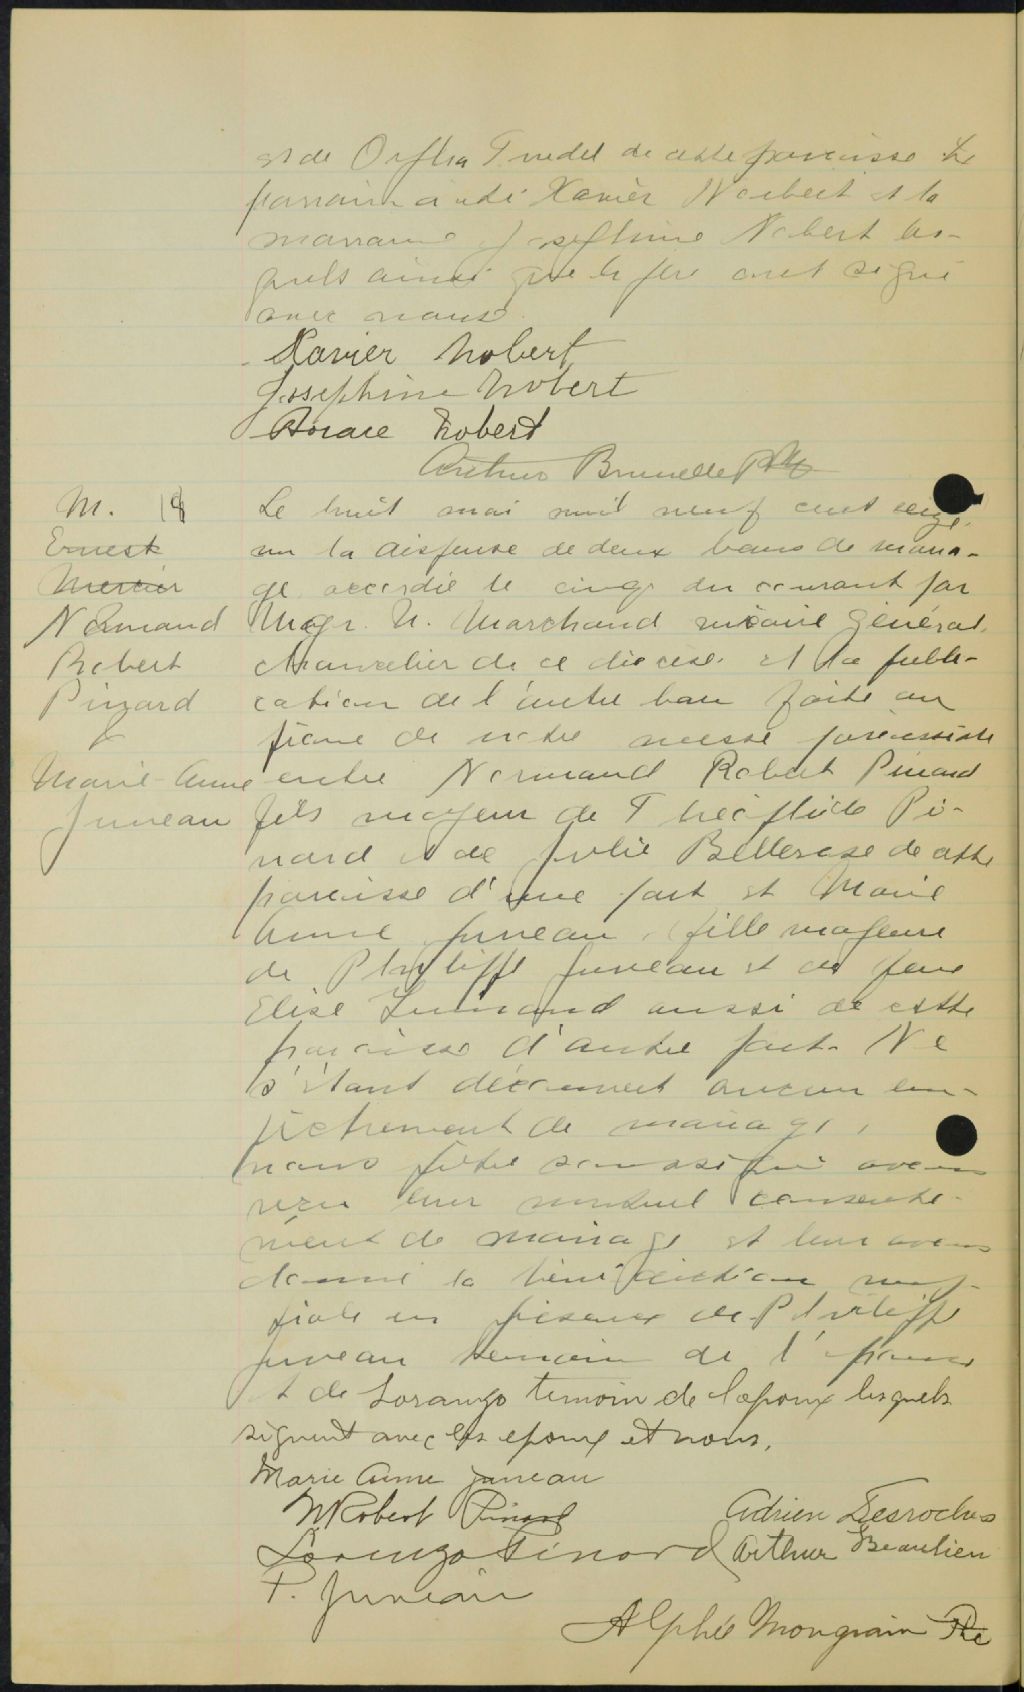 et de Orpha Trudel de cette paroisse Le
parrain a été Xavier Nobert et la
marraine Josephine Nobert les-
quels ainsi que le père ont signé
avec nous.
Xavier Nobert
Josephine Nobert
Horace Nobert
Arthur Brunelle Ptre
M. 18
Ernest
Mercier
Normand
Robert
Pinard
Marie-Anne
Juneau
Le huit mai mil neuf cent seize,
vu la dispense de deux bans de maria-
ge accordée le cinq du courant par
Mgr. U. Marchand vicaire général,
chancelier de ce diocèse et la publi-
cation de l'autre ban faite au
prone de notre messe paroissiale
entre Normand Robert Pinard
fils majeur de Théophile Pi-
nard et de Julie Bellerose de cette
paroisse d'une part et Marie
Anne Juneau, fille majeure
de Philippe Juneau et de feue
Elise aussi de cette
paroisse d'autre part. Ne
s'étant découvert aucun em-
pêchement de mariage,
nous prêtre soussigné avons
reçu leur mutuel consente-
ment de mariage et leur avons
donné la bénédiction nup-
tiale en présence de Philippe
Juneau temoin de l'épouse
et de Lorenzo temoin de l'epoux lesquels
signent avec les epoux et nous.
Marie Anne Juneau
N Robert Pinard
Adrien Desroches
Lorenzo Pinard
Arthur Beaulieu
P. Juneau
Alphée Mongrain Ptre